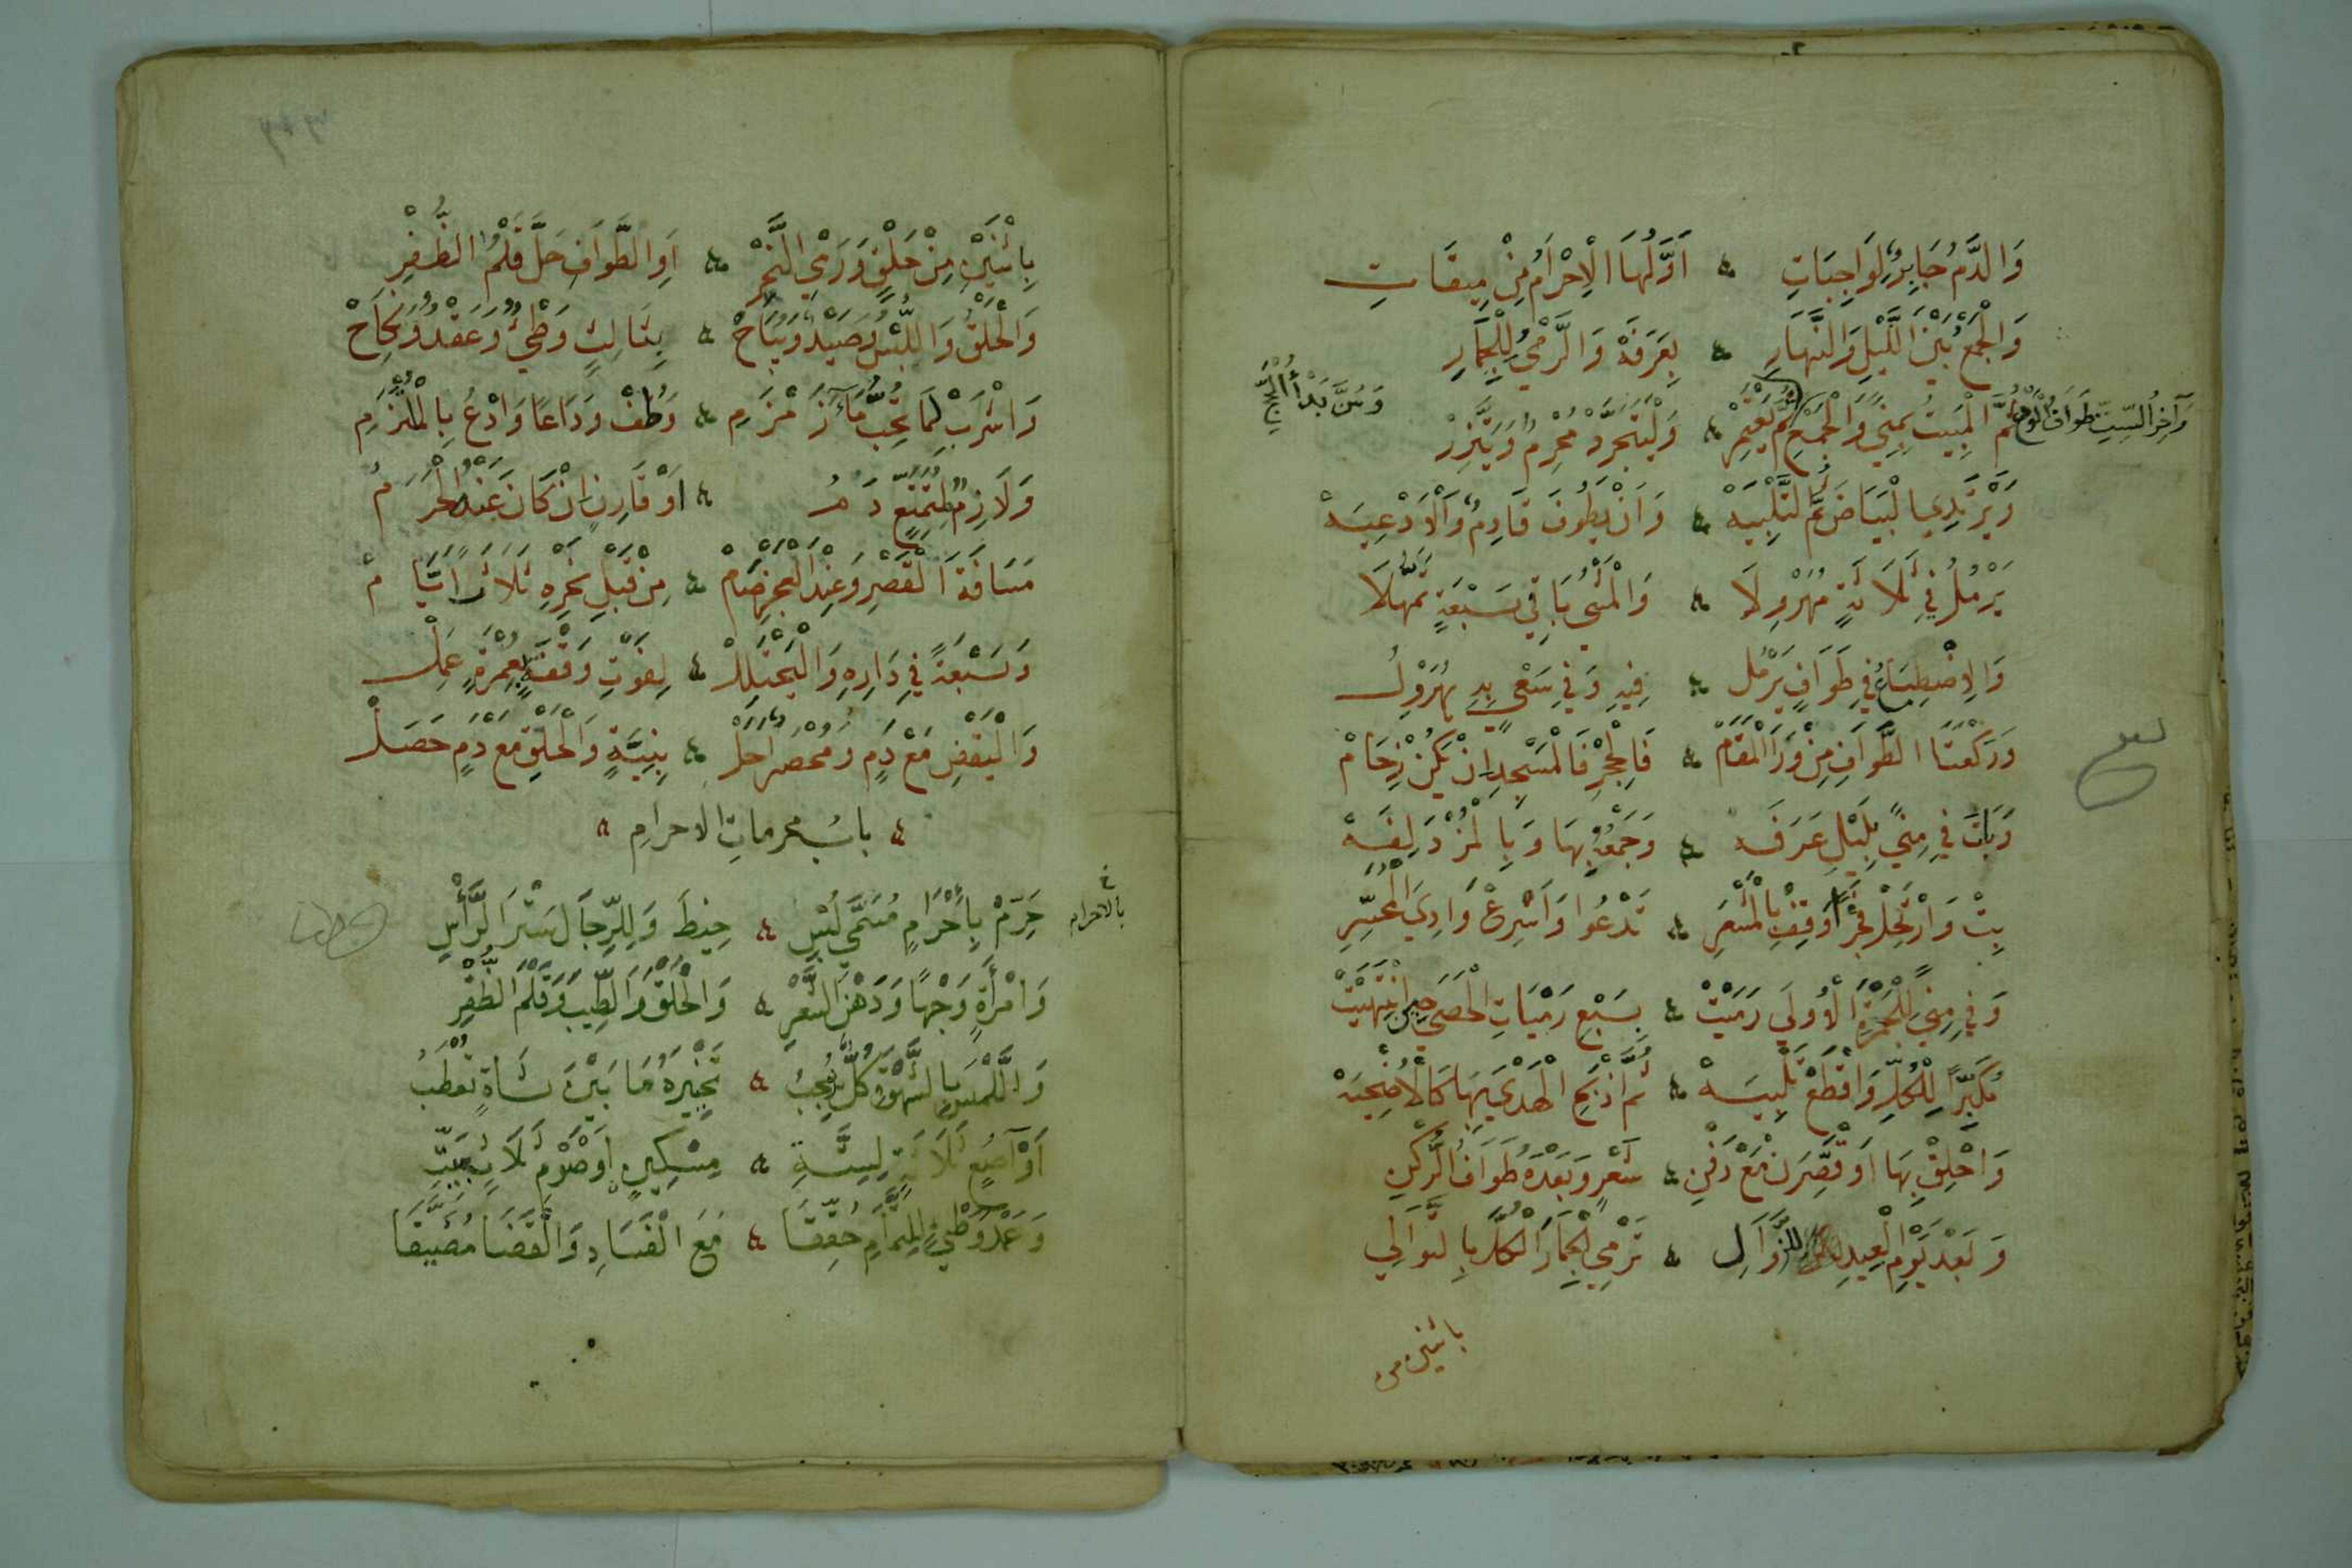 وَالدَّمُ جَابِرٌ لِوَاجِبَاتِ ۞ أَوَّلُهَا الْاِحْرَامُ مِنْ مِيقَاتِ
وَالْجَمْعُ بَيْنَ اللَّيْلِ وَالنَّهَارِ ۞ بِعَرَفَةْ وَالرَّمْيُ لِلْجِمَارِ
ثُمَّ الْمَبِيتُ بِمِنًي وَالْجَمْعِ ۞ وَلْيَتَجَرَّدْ مُحْرِمٌ وَيَتَّزِرْ
وَآخِرُ السِّتِّ طَوَافُ
وَسُنَّ بَدْأُ الْحَجِّ
وَيَرْتَدِي الْبَيَاضَ ثُمَّ التَّلْبِيَهْ ۞ وَأَنْ يَطُوفَ قَادِمٌ وَالْأَدْعِيَهْ
يَرْمُلُ فِي ثَلَاثَةٍ مُهَرْوِلَا ۞ وَالْمَشْيُ بَاقِي سَبْعَةٍ تَمَهَّلَا
وَالِاضْطِبَاعُ فِي طَوَافٍ يَرْمُلُ ۞ فِيهِ وَفِي سَعْيٍ بِهِ يُهَرْوِلُ
وَرَكْعَتَا الطَّوَافِ مِنْ وَرَا الْمَقَامْ ۞ فَالْحِجْرِ فَالْمَسْجِدِ إِنْ يَكُنْ زِحَامْ
وَبَاتَ فِي مِنًي بِلَيْلِ عَرَفَهْ ۞ وَجَمْعُهُ بِهَا وَبِالْمُزْدَلِفَهْ
بِتْ وَارْتَحِلْ فَجْرًا وَقِفْ بِالْمَشْعَرِ ۞ تَدْعُوا وَأَسْرِعْ وَادِيَ الْمُحَسِّرِ
وَفِي مِنًي لِلْجَمْرَةِ الْأُولَي رَمَيْتْ ۞ بِسَبْعِ رَمْيَاتِ الْحَصَي حِينَ انْتَهَيْتْ
مُكَبِّرًا لِلْكُلِّ وَاقْطَعْ تَلْبِيَهْ ۞ ثُمَّ اذْبَحِ الْهَدْيَ بِهَا كَالْأُضْحِيَهْ
وَاحْلِقْ بِهَا أَوْ قَصِّرَنْ مَعْ دَفْنِ ۞ شَعْرٍ وَبَعْدَهُ طَوَافُ الرُّكْنِ
وَبَعْدَ يَوْمِ الْعِيدِ لِلزَّوَالِ ۞ تَرْمِي الْجِمَارَ الْكُلَّ بِالتَّوَالِي
باثنين من
بِاثْنَيْنِ مِنْ حَلْقٍ وَرَمْيِ النَّحْرِ ۞ أَوِ الطَّوَافِ حَلَّ قَلْمُ الظُّفْرِ
وَالْحَلْقُ وَاللُّبْسُ وَصَيْدٌ وَيُبَاحْ ۞ بِثَالِثٍ وَطْيٌ وَعَقْدٌ وَنِكَاحْ
وَاشْرَبْ لِمَا تُحِبُّ مَاءَ زَمْزَمِ ۞ وَطُفْ وَدَاعًا وَادْعُ بِالْمُلْتَزَمِ
وَلَازِمٌ لِمُتَمَتِّعٍ دَمُ ۞ أَوْ قَارِنٍ إِنْ كَانَ عَنْهُ الْحَرَمُ
مَسَافَةَ الْقَصْرِ وَعِنْدَ الْعَجْزِ صَامْ ۞ مِنْ قَبْلِ نَحْرِهِ ثَلَاثَ أَيَّامْ
وَسَبْعَةً فِي دَارِهِ وَالْيَحْتَلِلْ ۞ لِفَوْتِ وَقْفَةٍ بِعُمْرَةٍ عَمِلْ
وَالْيَقْضِ مَعْ دَمٍ وَمُحْصَرٌ أَحَلْ ۞ بِنِيَّةٍ وَالْحَلْقِ مَعْ دَمٍ حَصَلْ
۞ باب محرمات الاحرام ۞
حَرِّمْ بِإِحْرَامٍ مُسَمَّي لُبْسِ ۞ خِيطَ وَلِلرِّجَالِ سَتْرَ الرَّأْسِ
خ بالاحرام
وَامْرَأَةٍ وَجْهًا وَدَهْنَ الشَّعْرِ ۞ وَالْحَلْقَ وَالطِّيبَ وَقَلْمَ الظُّفْرِ
وَاللَّمْسَ بِالشَّهْوَةِ كُلٌّ يُوجِبُ ۞ تَخْيِيرَهُ مَا بَيْنَ شَاةٍ تُعْطَبُ
أَوْ آصُعٍ ثَلَاثَةٍ لِسِتَّةِ ۞ مِسْكِينٍ أَوْ صَوْمِ ثَلَاثٍ بَيِّتِ
وَعَمْدُ وَطْيٍ لِلتَّمَامِ حَقَّقَا ۞ مَعَ الْفَسَادِ وَالْقَضَا مُضَيَّقَا